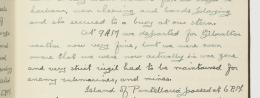 harbour, men cheering and bands playing
and she secured to a buoy at our stern.
At 9 AM we departed for Gibraltar
weather now very fine, but we were even
more that we were now actually in war zone
and very strict vigil had to be maintained for
enemy submarines, and mines.
Island of Pantellaria passed at 6 PM